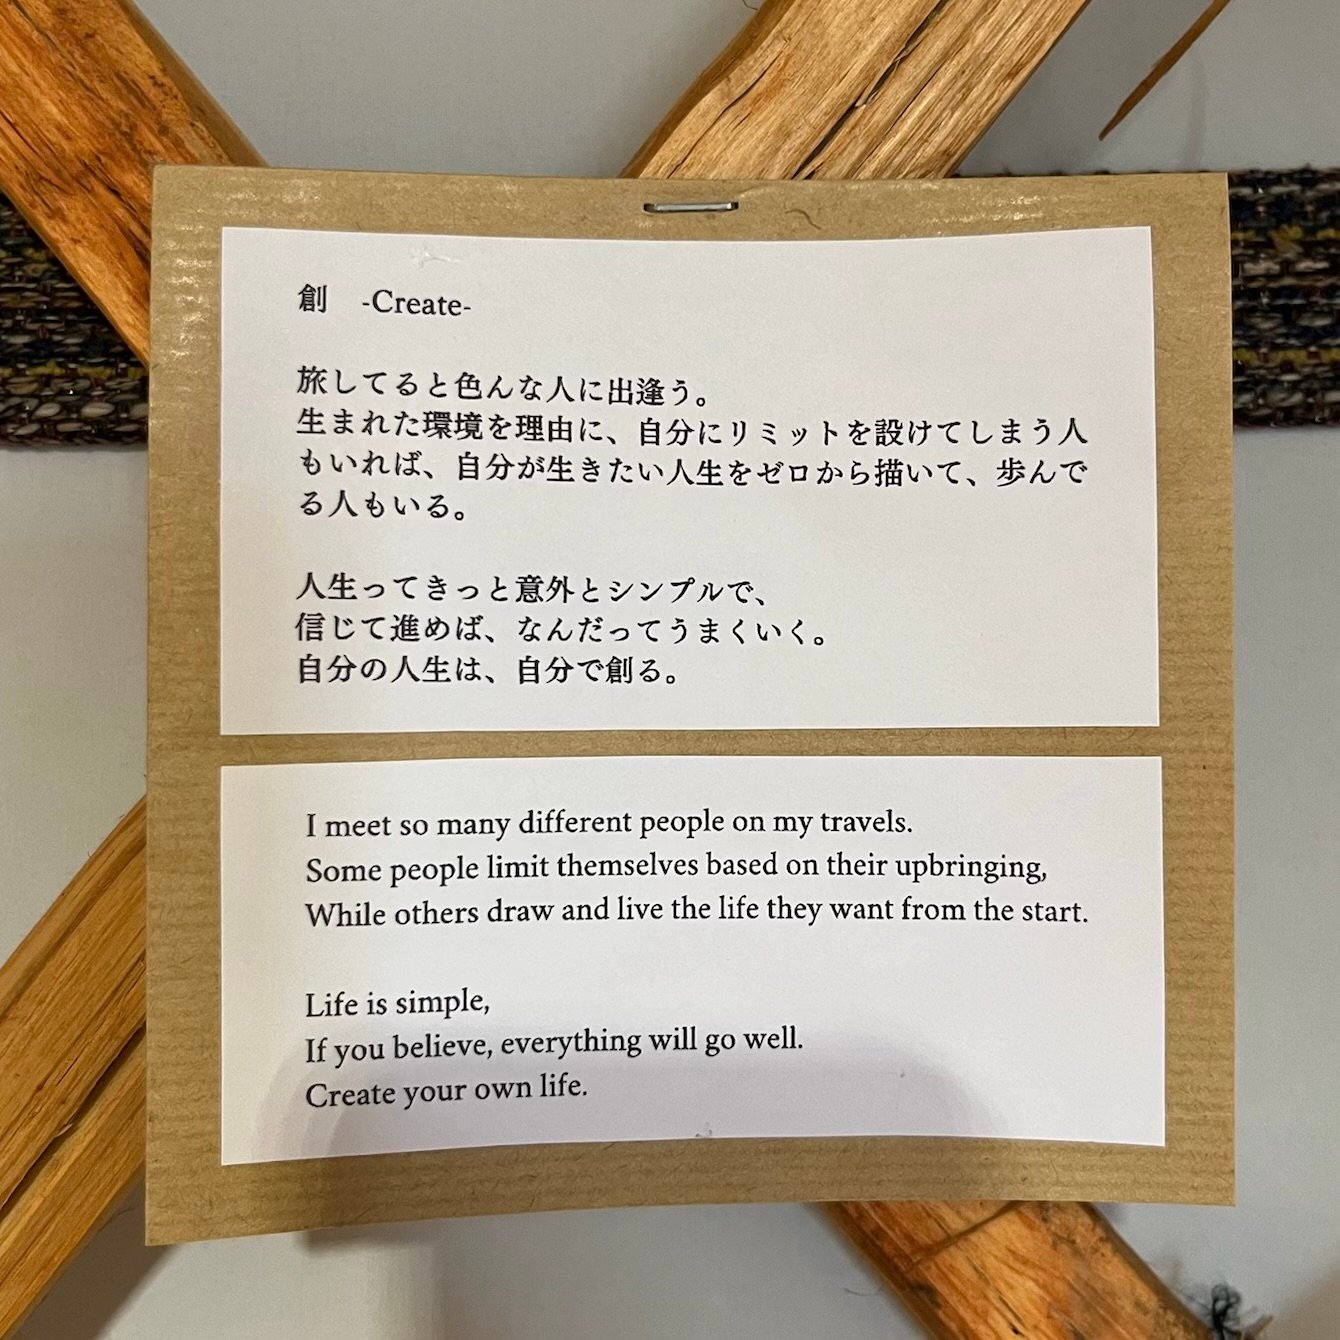 創　-Create-
旅してると色んな人に出逢う。
生まれた環境を理由に、自分にリミットを設けてしまう人
もいれば、自分が生きたい人生をゼロから描いて、歩んで
る人もいる。
人生ってきっと意外とシンプルで、
信じて進めば、なんだってうまくいく。
自分の人生は、自分で創る。
I meet so many different people on my travels.
Some people limit themselves based on their upbringing,
While others draw and live the life they want from the start.
Life is simple,
If you believe, everything will go well.
Create your own life.